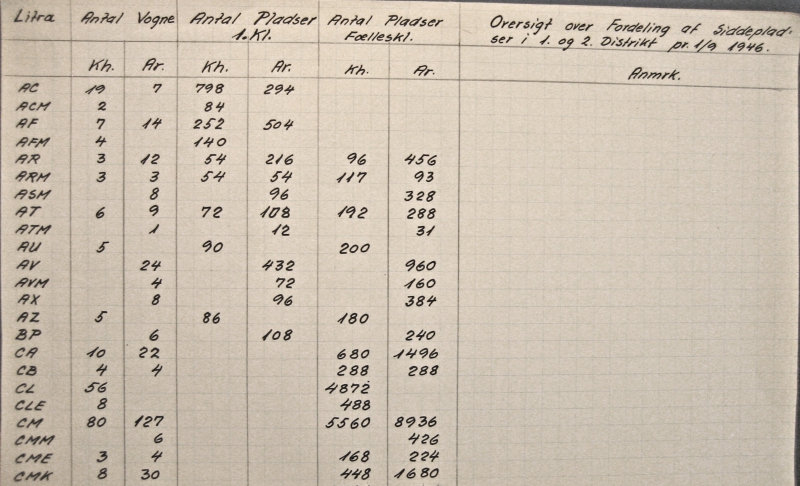 Litra Antal Vogne Antal Pladser Antal Pladser Oversigt over Fordeling af Siddeplad-
1. Kl. Fælleskl. ser i 1. og 2. Distrikt pr. 1/9 1946.
Kh. Ar. Kh. Ar. Kh. Ar. Anmrk.
AC 19 7 798 294
ACM 2 84
AF 7 14 252 504
AFM 4 140
AR 3 12 54 216 96 456
ARM 3 3 54 54 117 93
ASM 8 96 328
AT 6 9 72 108 192 288
ATM 1 12 31
AU 5 90 200
AV 24 432 960
AVM 4 72 160
AX 8 96 384
AZ 5 86 180
BP 6 108 240
CA 10 22 680 1496
CB 4 4 288 288
CL 56 4872
CLE 8 488
CM 80 127 5560 8936
CMM 6 426
CME 3 4 168 224
CMK 8 30 448 1680